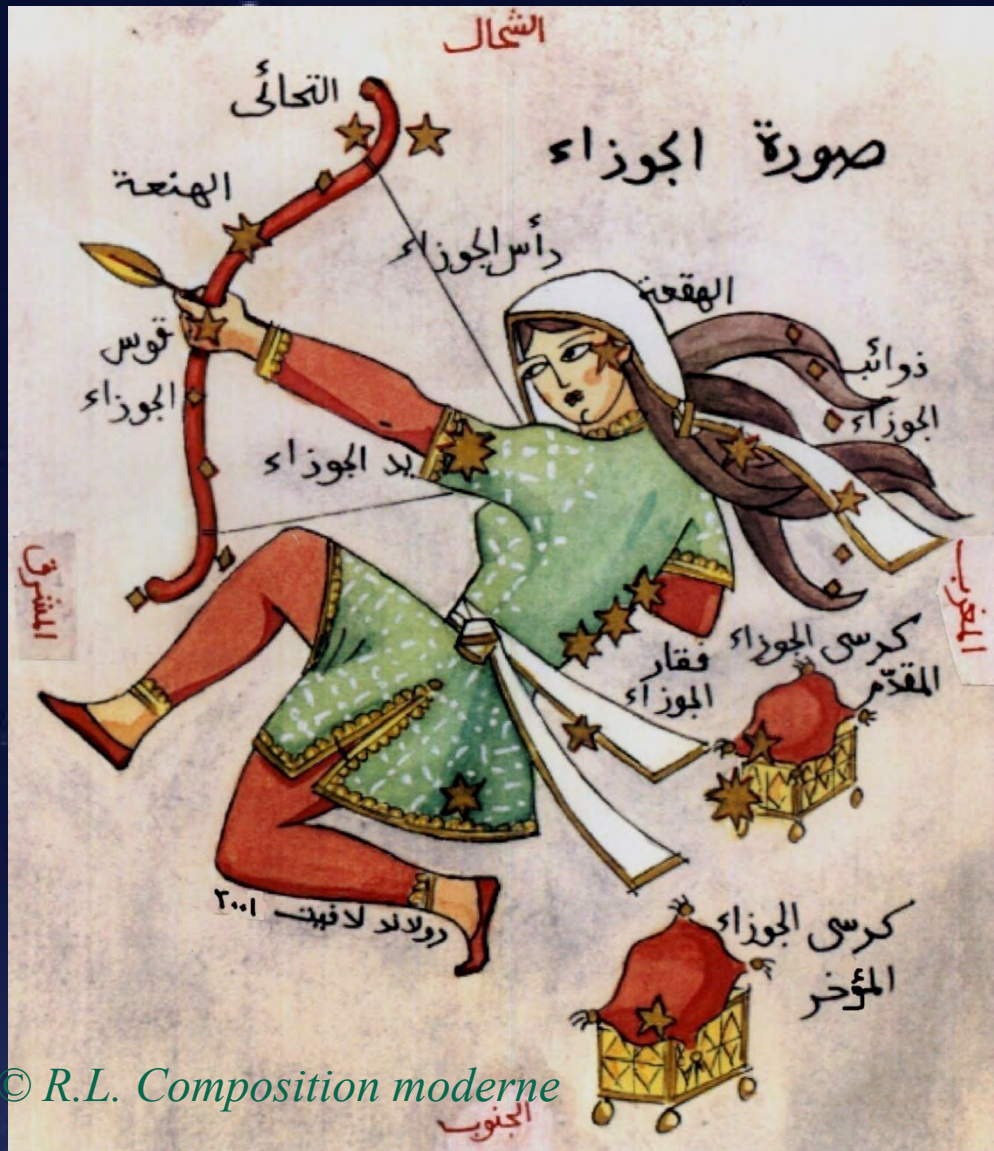 الشمال
التحائى
صورة الجوزاء
الهنعة
رأس الجوزاء
الهقعة
قوس
الجوزاء
ذوائب
الجوزاء
يد الجوزاء
المشرق
المغرب
كرسى الجوزاء
المقدّم
فقار
الجوزاء
رولاند لافيت ٢٠٠١
كرسى الجوزاء
المؤخر
© R.L. Composition moderne
الجنوب